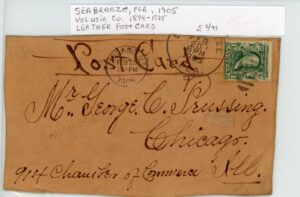 SEABREEZE, FLA, 1905
VOLUSIA CO. 1894-1925
LEATHER POST CARD
Post Card.
Mr. George C. Prussing.
Chicago.
914 Chamber of Commerce Ill.